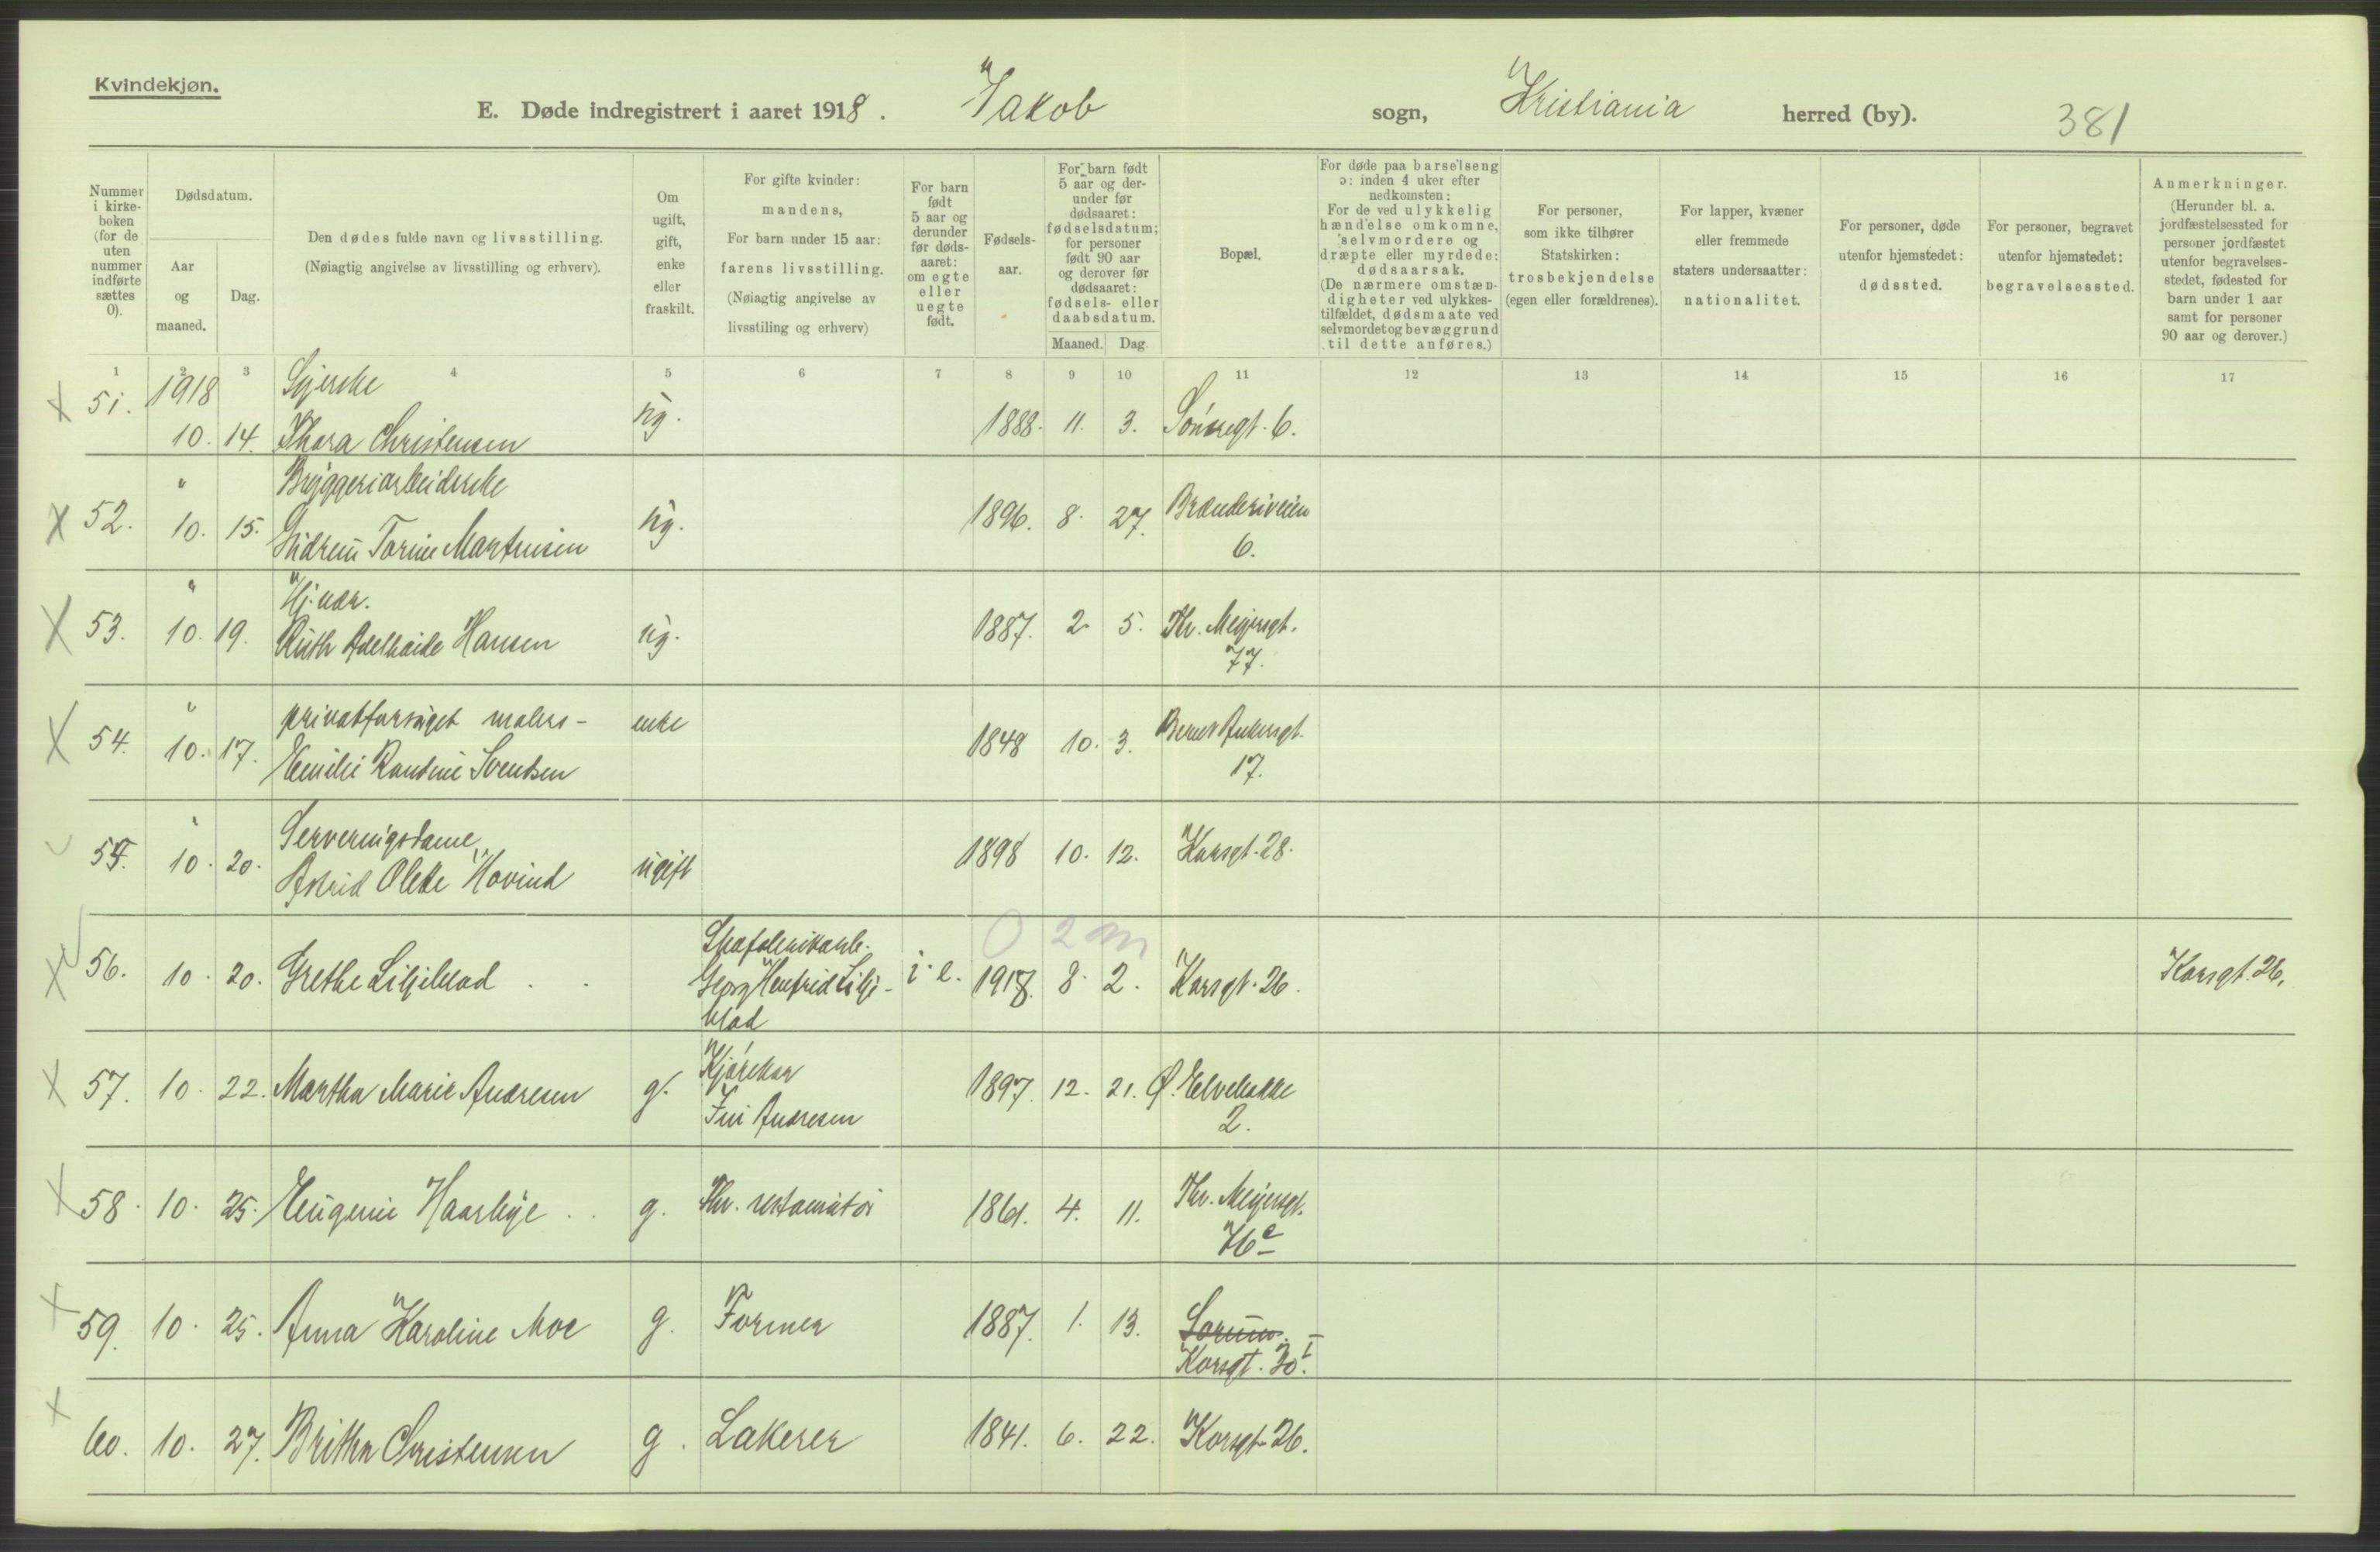 Kvindekjøn.
E. Døde indregistrert i aaret 1918. Jakob sogn, Kristiania herred (by). 381
Nummer i kirke-boken (for de uten nummer indførte sættes 0).
Dødsdatum.
Aar og maaned.
Dag.
Den dødes fulde navn og livsstilling.
(Nøiagtig angivelse av livsstilling og erhverv).
Om ugift, gift, enke eller fraskilt.
For gifte kvinder:
mandens,
For barn under 15 aar:
farens livsstilling.
(Nøiagtig angivelse av
livsstiling og erhverv)
For barn født 5 aar og derunder før døds-aaret: om egte eller uegte født.
Fødsels-aar.
For barn født 5 aar og der-under før dødsaaret: fødselsdatum; for personer født 90 aar og derover før dødsaaret: fødsels- eller daabsdatum.
Maaned. Dag.
Bopæl.
For døde paa barselseng ɔ: inden 4 uker efter nedkomsten:
For de ved ulykkelig hændelse omkomne, selvmordere og dræpte eller myrdede: dødsaarsak.
(De nærmere omstæn-digheter ved ulykkes-tilfældet, dødsmaate ved selvmordet og bevæggrund til dette anføres.)
For personer, som ikke tilhører Statskirken: trosbekjendelse (egen eller forældrenes).
For lapper, kvæner eller fremmede staters undersaatter: nationalitet.
For personer, døde utenfor hjemstedet: dødssted.
For personer, begravet utenfor hjemstedet: begravelsessted.
Anmerkninger.
(Herunder bl. a. jordfæstelsessted for personer jordfæstet utenfor begravelses-stedet, fødested for barn under 1 aar samt for personer 90 aar og derover.)
1 2 3 4 5 6 7 8 9 10 11 12 13 14 15 16 17
1918 Syerske
51. 10. 14. Thora Christensen ug. 1888. 11. 3. 6.
" Bryggeriarbeiderske
52. 10. 15. Gudrun Torine Martinsen ug. 1896. 8. 27. Brænderiveien
6.
" Hj. vær.
53. 10. 19. Ruth Adelhaide Hansen ug. 1887. 2. 5. Th. Meyersgt.
77.
" privatforsørget malers- enke
54. 10. 17. Emilie Svendsen 1848 10. 3. Bernt Ankersgt.
17.
" Serveringsdame
55. 10. 20. Astrid Olette Hovind ugift 1898 10. 12. Korsgt. 28.
0 2 m
56. 10. 20. Grethe Liljeblad . . Skofabrikarb. Georg Henfrid Lilje-
blad i. e. 1918. 8. 2. Korsgt. 26. Korsgt. 26.
57. 10. 22. Martha Marie Andresen g. Kjørekar
Andresen 1897. 12. 21. Ø. Elvebakke
2.
58. 10. 25. Eugenie Haarbye . . g. Thv. restauratør 1861. 4. 11. Thv. Meyersgt.
76 c
59. 10. 25. Anna Karoline Moe g. Former 1887. 1. 13.
Korsgt. 30. I
60. 10. 27. Britha Christensen g. Lakerer 1841. 6. 22. Korsgt. 26.